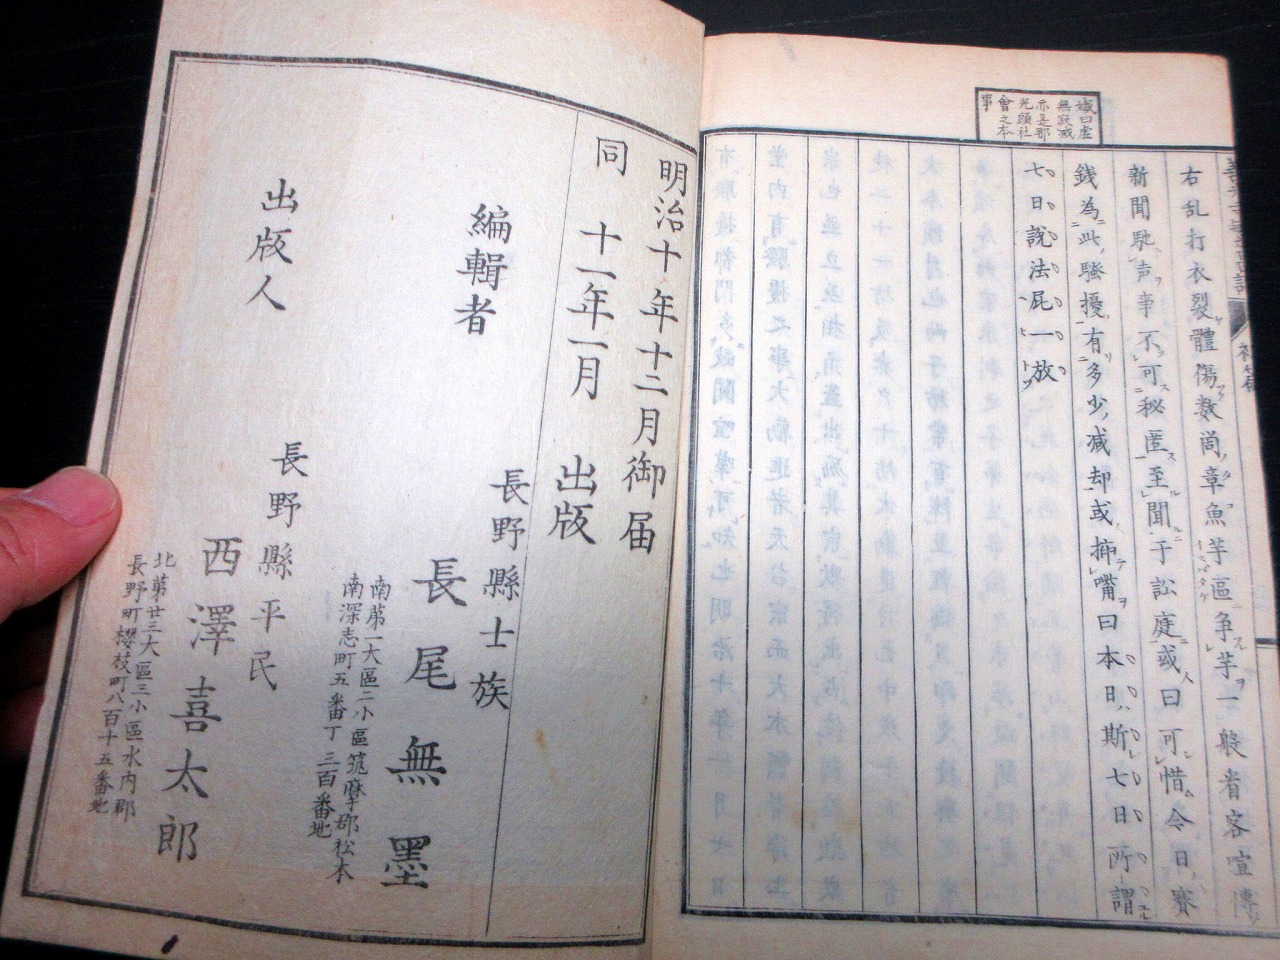 嬢曰虚
無寂滅
亦是那
光頭社
會之本
事
右乱打衣裂體傷数尚章魚芋區争芋一般者客喧傳
新聞馳声事不可秘匿至聞于訟庭或曰可惜今日賽
銭為此騒擾有多少減却或揷嘴曰本日斯七日所謂
七日説法屁一放
明治十年十二月御届
同 十一年一月 出版
編輯者
長野縣士族
長尾無墨
南第一大區二小區筑摩郡松本
南深志町五番丁三百番地
出版人
長野縣平民
西澤喜太郎
北第廿三大區三小區水内郡
長野町櫻枝町八百十五番地